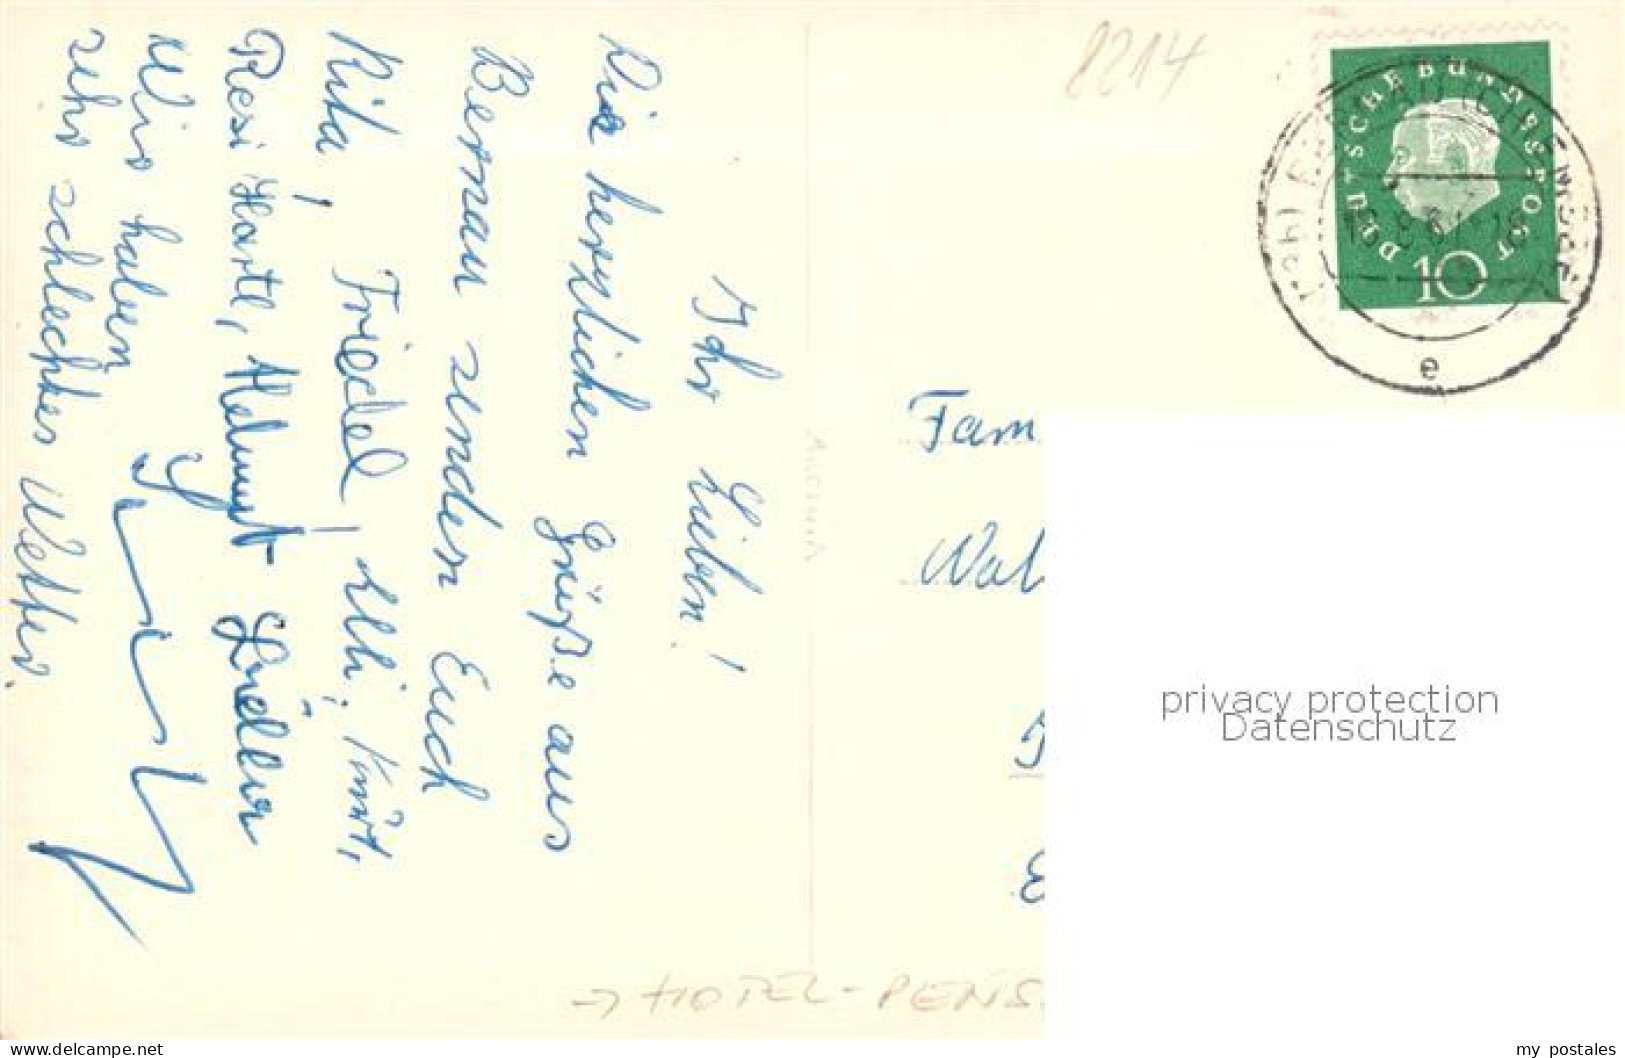 Ihr Lieben!
Die herzlichen Grüße aus
Bernau senden Euch
Rita, Friedel, Elli, Kurt,
Resi Hartl, Helmut
Wir haben
sehr schlechtes Wetter.
8214
DEUTSCHE BUNDESPOST
10
e
Fam
Wal
→ HOTEL - PENS.
privacy protection
Datenschutz
www.delcampe.net
my_postales